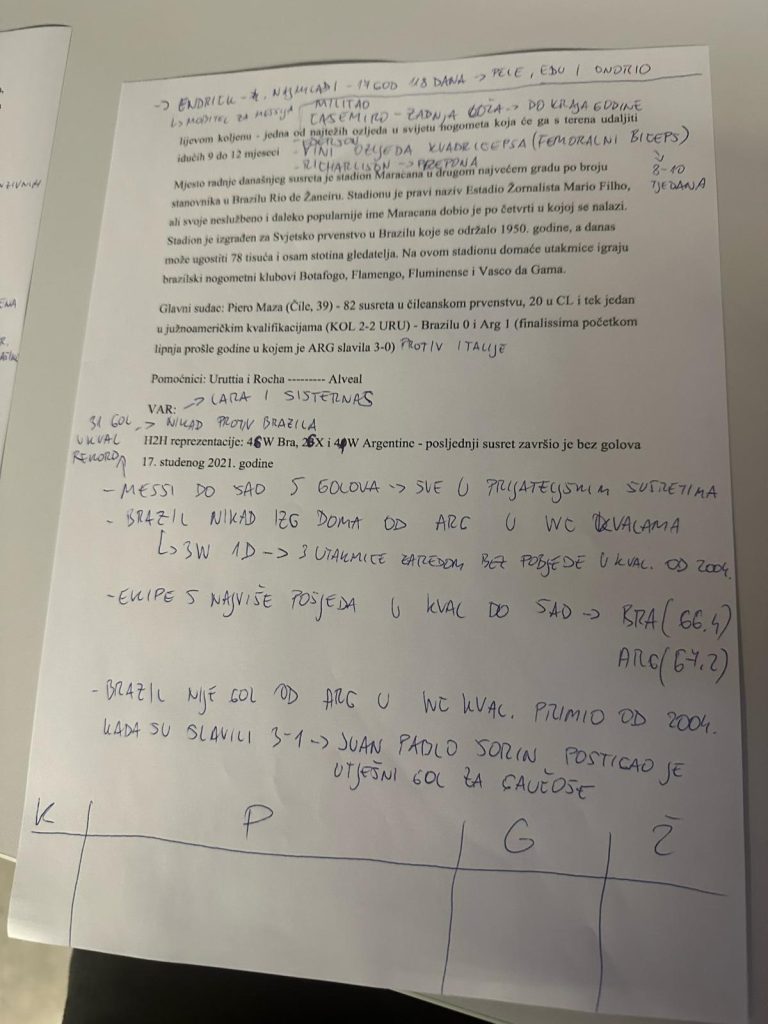 → ENDRICK - 4. NAJMLAĐI - 17 GOD 118 DANA → PELE, EDU I ONORIO
↳ MODITEL ZA MESSIJA
- MILITAO
CASEMIRO - ZADNJA LOŽA → DO KRAJA GODINE
lijevom koljenu - jedna od najtežih ozljeda u svijetu nogometa koja će ga s terena udaljiti
- EDERSON
idućih 9 do 12 mjeseci
- VINI OZLJEDA KVADRICEPSA (FEMORALNI BICEPS)
↳ 8-10 TJEDANA
- RICHARLISON → PREPONA
Mjesto radnje današnjeg susreta je stadion Maracana u drugom najvećem gradu po broju
stanovnika u Brazilu Rio de Žaneiru. Stadionu je pravi naziv Estadio Žornalista Mario Filho,
ali svoje neslužbeno i daleko popularnije ime Maracana dobio je po četvrti u kojoj se nalazi.
Stadion je izgrađen za Svjetsko prvenstvo u Brazilu koje se održalo 1950. godine, a danas
može ugostiti 78 tisuća i osam stotina gledatelja. Na ovom stadionu domaće utakmice igraju
brazilski nogometni klubovi Botafogo, Flamengo, Fluminense i Vasco da Gama.
Glavni sudac: Piero Maza (Čile, 39) - 82 susreta u čileanskom prvenstvu, 20 u CL i tek jedan
u južnoameričkim kvalifikacijama (KOL 2-2 URU) - Brazilu 0 i Arg 1 (finalissima početkom
lipnja prošle godine u kojem je ARG slavila 3-0) PROTIV ITALIJE
Pomoćnici: Uruttia i Rocha --------- Alveal
VAR: → LARA I SISTERNAS
31 GOL → NIKAD PROTIV BRAZILA
U KVAL
REKORD
H2H reprezentacije: 46W Bra, 26X i 40W Argentine - posljednji susret završio je bez golova
17. studenog 2021. godine
- MESSI DO SAD 5 GOLOVA → SVE U PRIJATELJSKIM SUSRETIMA
- BRAZIL NIKAD IZG DOMA OD ARG U WC KVALAMA
↳ 3W 1D → 3 UTAKMICE ZAREDOM BEZ POBJEDE U KVAL. OD 2004.
- EKIPE S NAJVIŠE POSJEDA U KVAL DO SAD → BRA (66.4)
ARG (67.2)
- BRAZIL NIJE GOL OD ARG U WC KVAL. PRIMIO OD 2004.
KADA SU SLAVILI 3-1 → JUAN PABLO SORIN POSTIGAO JE
UTJEŠNI GOL ZA GAUČOSE
K P G Ž